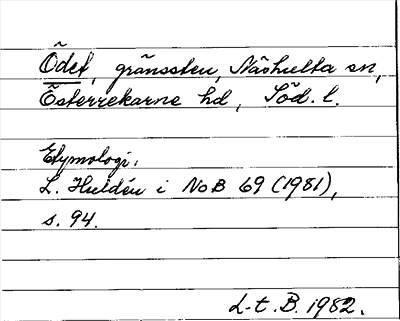 Ödet, gränssten, Näshulta sn,
Österrekarne hd, Söd. l.
Etymologi.
L. Huldén i NoB 69 (1981),
s. 94.
L-t. B. 1982.